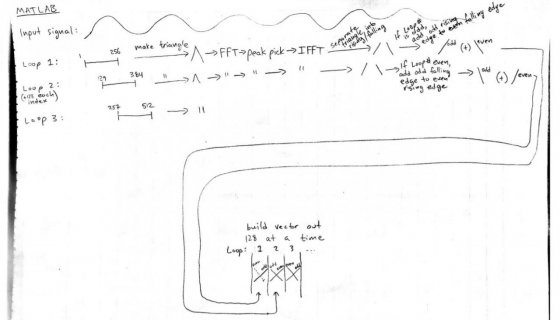 MATLAB
Input signal:
Loop 1: 1 256 make triangle → FFT → peak pick → IFFT → separate triangle into rising/falling → If Loop# is odd, add odd rising edge to even falling edge → odd (+) even
Loop 2: 129 384 " → " → " → " → " → If Loop# even, add odd falling edge to even rising edge → odd (+) even
index
Loop 3: 257 512 → "
build vector out
128 at a time
Loop: 1 2 3 ...